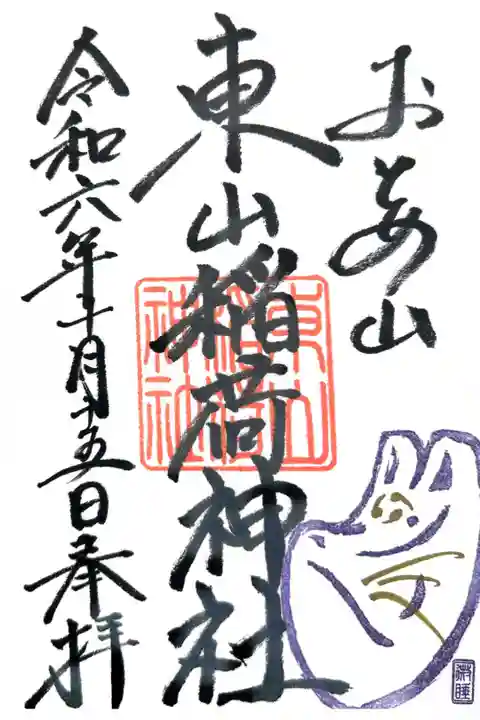 おとめ山
東山稲荷神社
東山
稲荷
神社
令和六年十一月十五日奉拝
微睡